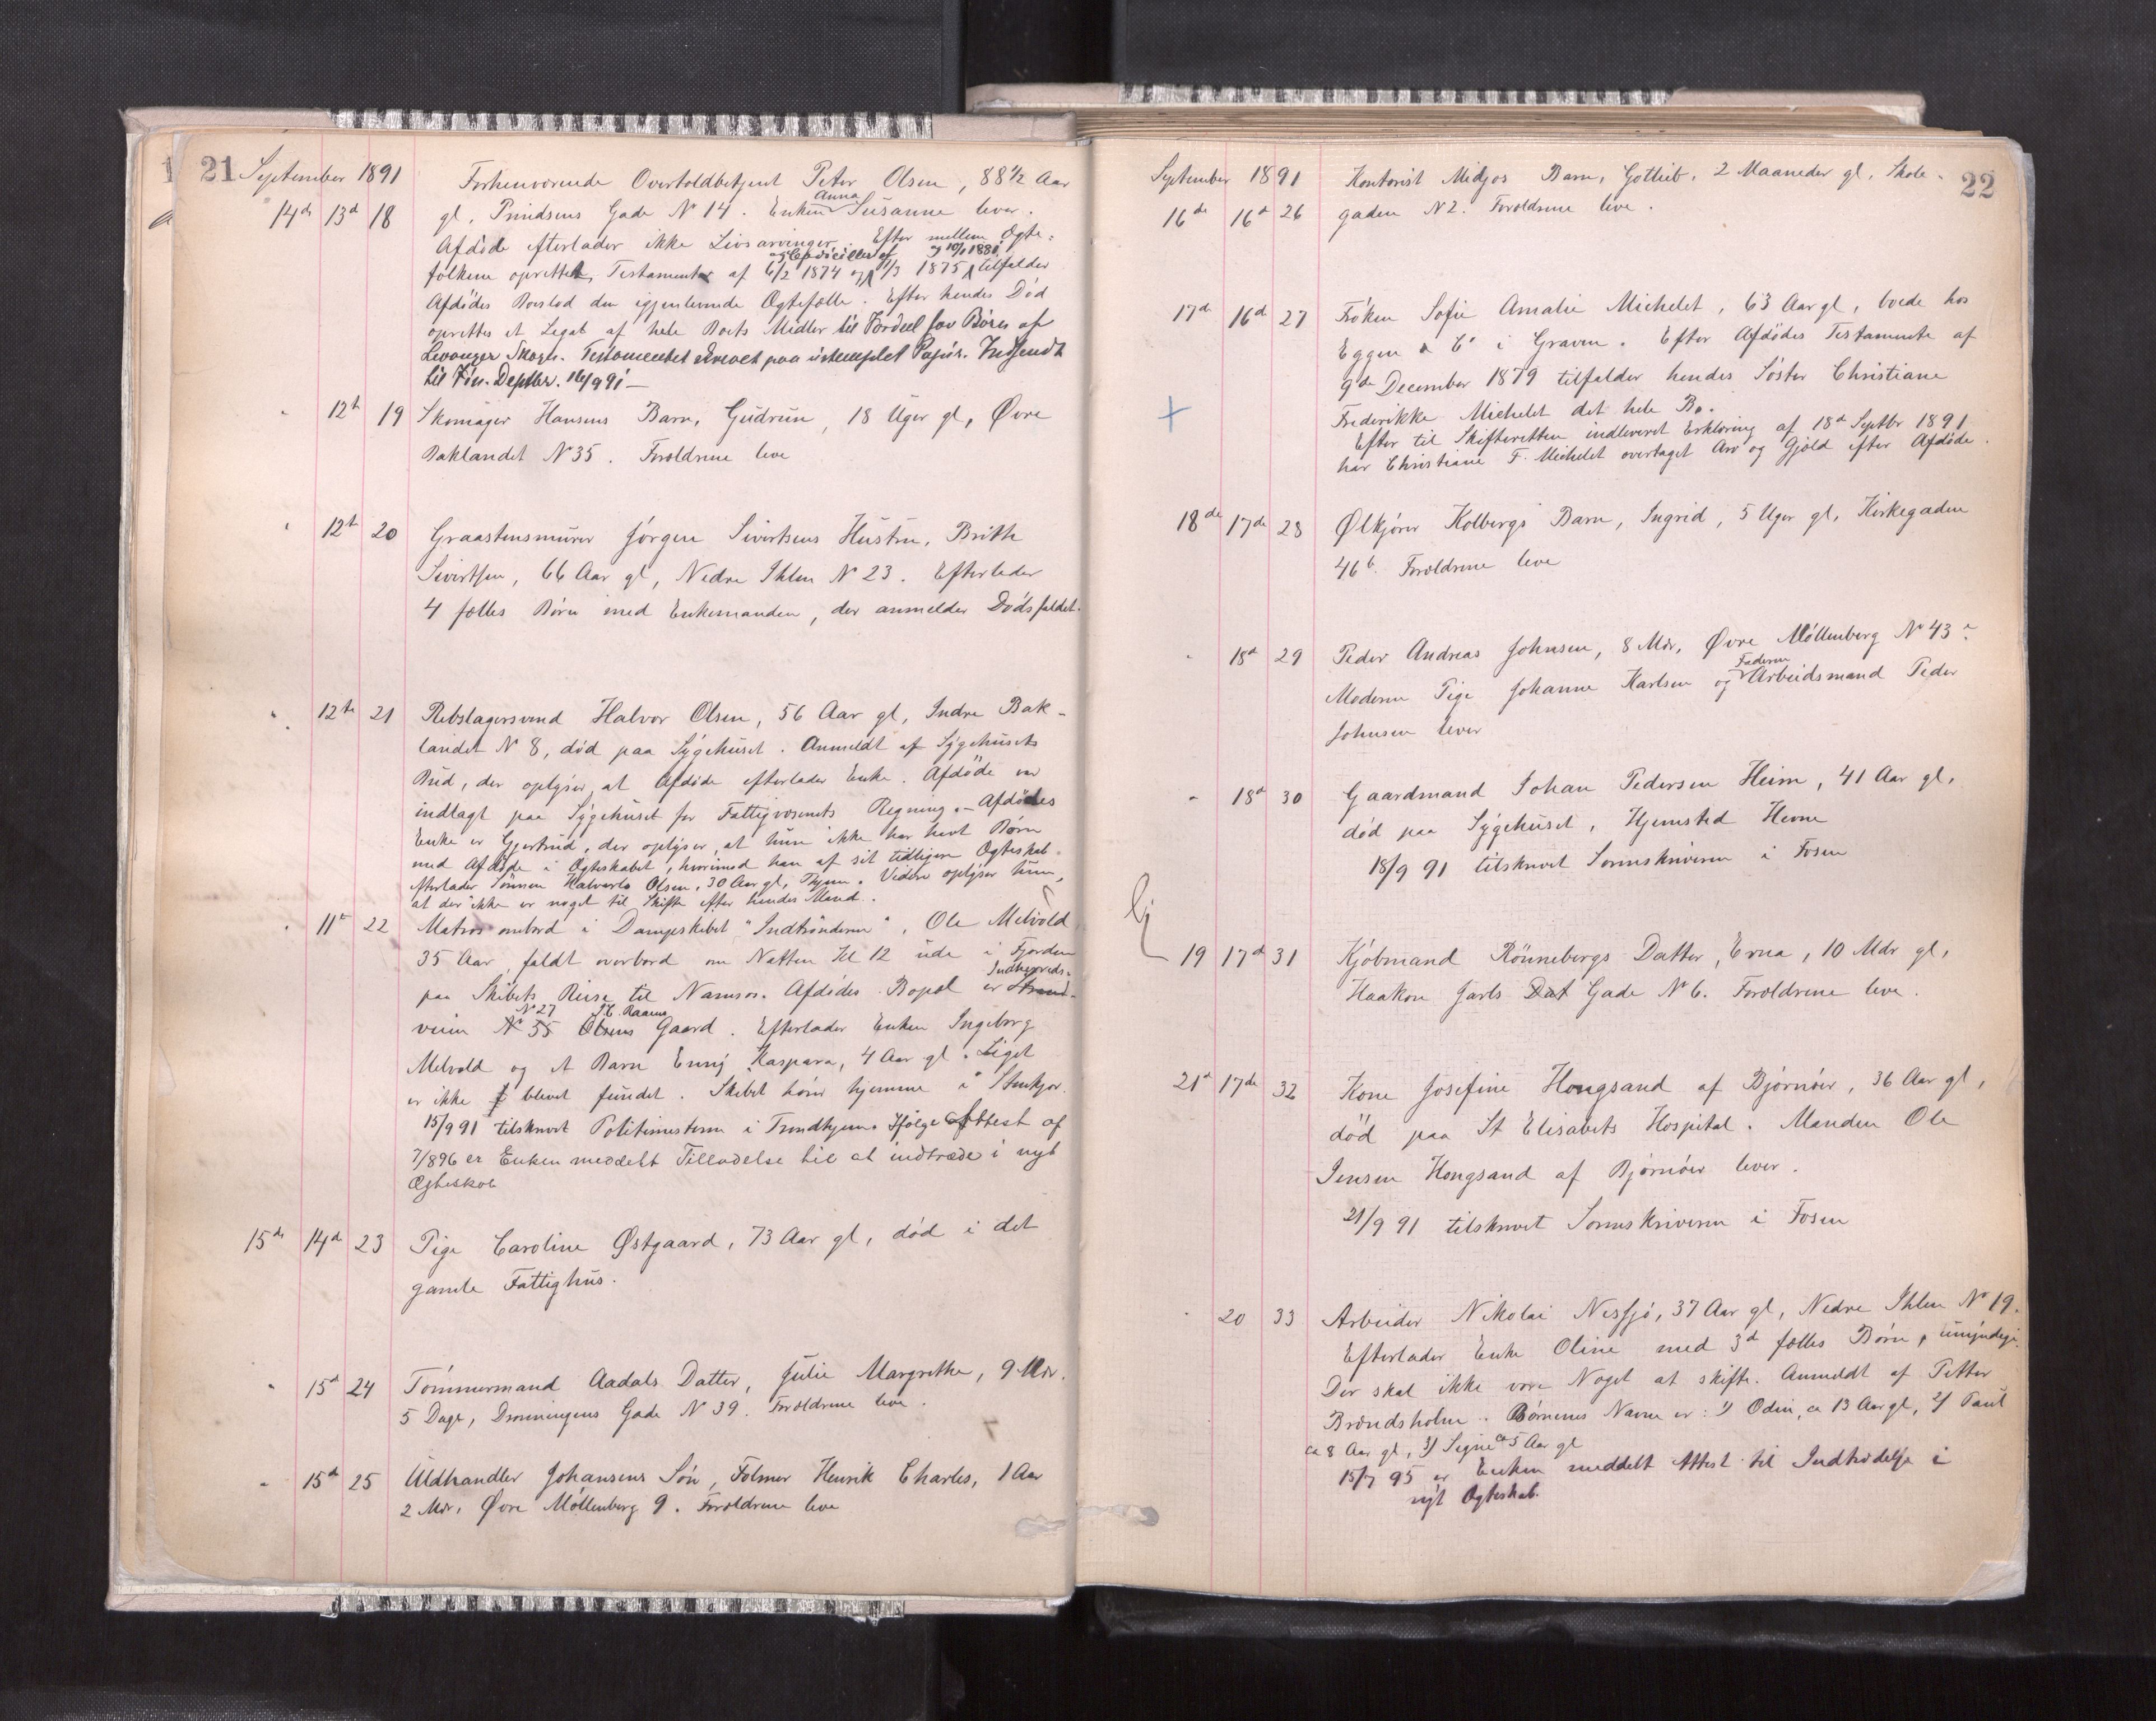 21
September 1891
Forhenværende Overtoldbetjent Peter Olsen, 88 1/2 Aar
14de 13d 18 gl, Prindsens Gade No 14. Enken Anna Susanne lever.
Afdöde efterlader ikke Livsarvinger. Efter mellem Ægte-
folkene oprettet Testament af 6/2 1874 og Codiciller af 1/3 1875 og 10/1 1881 tilfalder
Afdödes Boeslod den igjenlevende Ægtefælle. Efter hendes Död
oprettes et Legat af hele Boets Midler til Fordeel for Börn af
Levanger Skogn. Testamentet skrevet paa ustemplet Papir. Indsendt
til Fin. Deptbr. 16/9 91 —
12t 19 Skomager Hansens Barn, Gudrun, 18 Uger gl, Øvre
Baklandet No 35. Forældrene leve
12t 20 Graastensmurer Jörgen Sivertsens Hustru, Brith
Sivertsen, 66 Aar gl, Nedre Ihlen No 23. Efterlader
4 fælles Börn med Enkemanden, der anmelder Dödsfaldet.
12te 21 Rebslagersvend Halvor Olsen, 56 Aar gl, Indre Bak-
landet No 8, död paa Sygehuset. Anmeldt af Sygehusets
Bud, der oplyser, at Afdöde efterlader Enke. Afdöde var
indlagt paa Sygehuset for Fattigvæsenets Regning. – Afdödes
Enke er Gjertrud, der oplyser, at hun ikke har havt Börn
med Afdöde i Ægteskabet, hvorimod han af sit tidligere Ægteskab
efterlader Sönnen Halvard Olsen, 30 Aar gl, Thjem. Videre oplyser hun,
at der ikke er noget til Skifte efter hendes Mand.
11te 22 Matros ombord i Dampskibet "Indtrönderen", Ole Melvold
35 Aar, faldt overbord om Natten Kl 12 ude i Fjorden
paa Skibets Reise til Namsos. Afdödes Bopæl er Strand- Indherreds-
veien No 35 Olsens Gaard. No 27 Efterlader Enken Ingeborg
Melvold og et Barn Enny Kaspara, 4 Aar gl. Liget
er ikke blevet fundet. Skibet hörer hjemme i Stenkjær.
15/9 91 tilskrevet Politimesteren i Trondhjem. Ifölge Attest af
7/8 96 er Enken meddelt Tilladelse til at indtræde i nyt
Ægteskab
15de 14d 23 Pige Caroline Østgaard, 73 Aar gl, död i det
gamle Fattighus.
15d 24 Tömmermand Aadals Datter, Julie Margrethe, 9 Mdr.
5 Dage, Dronningens Gade No 39. Forældrene leve.
15d 25 Uldhandler Johansens Sön, Folmer Henrik Charles, 1 Aar
2 Mdr, Øvre Möllenberg 9. Forældrene leve
22
September 1891
Kontorist Midjos Barn, Gottlieb, 2 Maaneder gl, Skole-
16de 16d 26 gaden No 2. Forældrene leve.
17de 16d 27 Fröken Sofie Amalie Michelet, 63 Aar gl, boede hos
Eggen i Graven. Efter Afdödes Testamente af
9de December 1879 tilfalder hendes Söster Christiane
Frederikke Michelet det hele Bo.
Efter til Skifteretten indleveret Erklæring af 18d Septbr 1891
har Christiane F. Michelet overtaget Arv og Gjæld efter Afdöde.
18de 17de 28 Ølkjörer Kolbergs Barn, Ingrid, 5 Uger gl, Kirkegaden
46b. Forældrene leve
18d 29 Peder Andreas Johnsen, 8 Mdr, Øvre Möllenberg No 43a.
Moderen Pige Johanne Karlsen og Faderen Arbeidsmand Peder
Johnsen lever
18d 30 Gaardmand Johan Pedersen Heim, 41 Aar gl,
död paa Sygehuset, Hjemsted Hevne
18/9 91 tilskrevet Sorenskriveren i Fosen
19 17d 31 Kjöbmand Rönnebergs Datter, Erna, 10 Mdr gl,
Haakon Jarls Dat Gade No 6. Forældrene leve.
21d 17de 32 Kone Josefine Hongsand af Bjørnöer, 36 Aar gl,
död paa St Elisabets Hospital. Manden Ole
Jensen Hongsand af Bjørnöer lever.
21/9 91 tilskrevet Sorenskriveren i Fosen
20 33 Arbeider Nikolai Nessjö, 37 Aar gl, Nedre Ihlen No 19.
Efterlader Enke Oline med 3d fælles Börn, umyndige.
Der skal ikke være Noget at skifte. Anmeldt af Petter
Brændsholm. Börnenes Navne er: 1) Odin, ca 13 Aar gl, 2) Paul
ca 8 Aar gl, 3) Signe ca 5 Aar gl
15/7 95 er Enken meddelt Attest til Indtrædelse i
nyt Ægteskab.